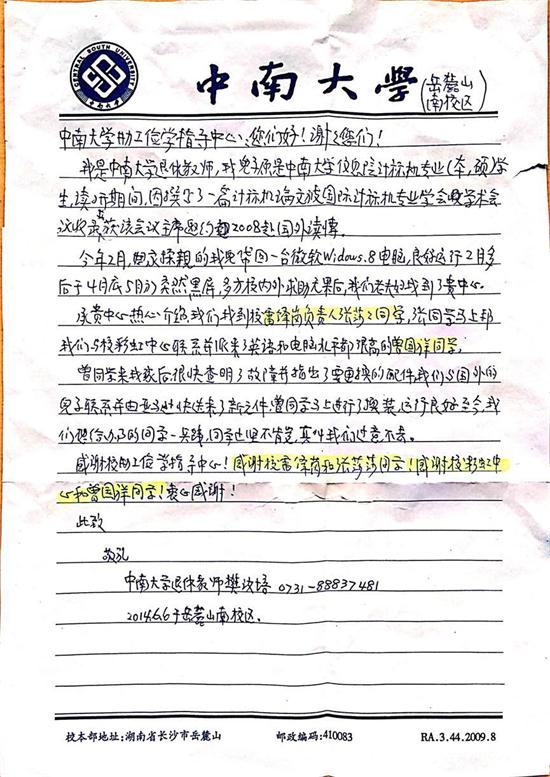 CENTRAL SOUTH UNIVERSITY
中南大学
中南大學(岳麓山南校区)
中南大学助工位学指导中心、您们好!谢谢您们!
我是中南大学退休教师,我儿子原是中南大学信息院计标机专业(本,硕)学
生,读研期间,因撰写了一篇计标机论文被国际计标机专业学会
议收录并获该会议主席邀约赴2008赴国外读博。
今年2月,回京探亲的我儿带回一台微软Widows.8电脑,良好运行2月多
后于4月底5月初突然黑屏,多方校内外求助无果后,我们老夫妇找到了贵中心。
承贵中心热心介绍,我们找到校雷锋岗负责人张莎莎同学,张同学马上帮
我们与校彩虹中心联系并派来了英语和电脑水平都很高的曾国洋同学,
曾同学来我家后很快查明了故障并指出了要更换的配件,我们与国外的
儿子联系并由亚马逊快送来了新元件,曾同学马上进行了换装,运行良好至今,我
们想给办了的同学一点钱,同学也坚不肯定,真叫我们过意不去。
感谢校助工位学指导中心!感谢校雷锋岗和张莎莎同学!感谢校彩虹中
心和曾国洋同学!衷心感谢!
此致
敬礼
中南大学退休教师樊 培 0731-88837481
2014.6.6于岳麓山南校区.
校本部地址:湖南省长沙市岳麓山 邮政编码:410083 RA.3.44.2009.8